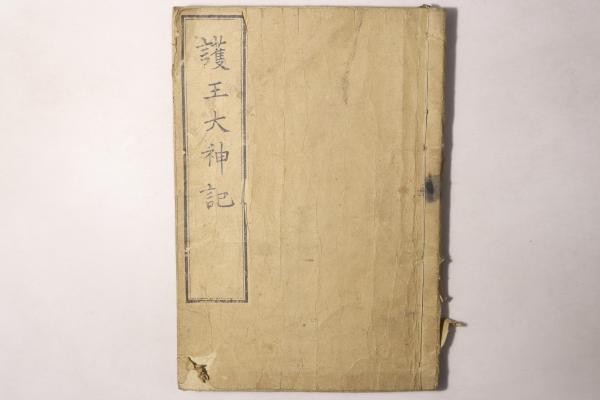 護王大神記